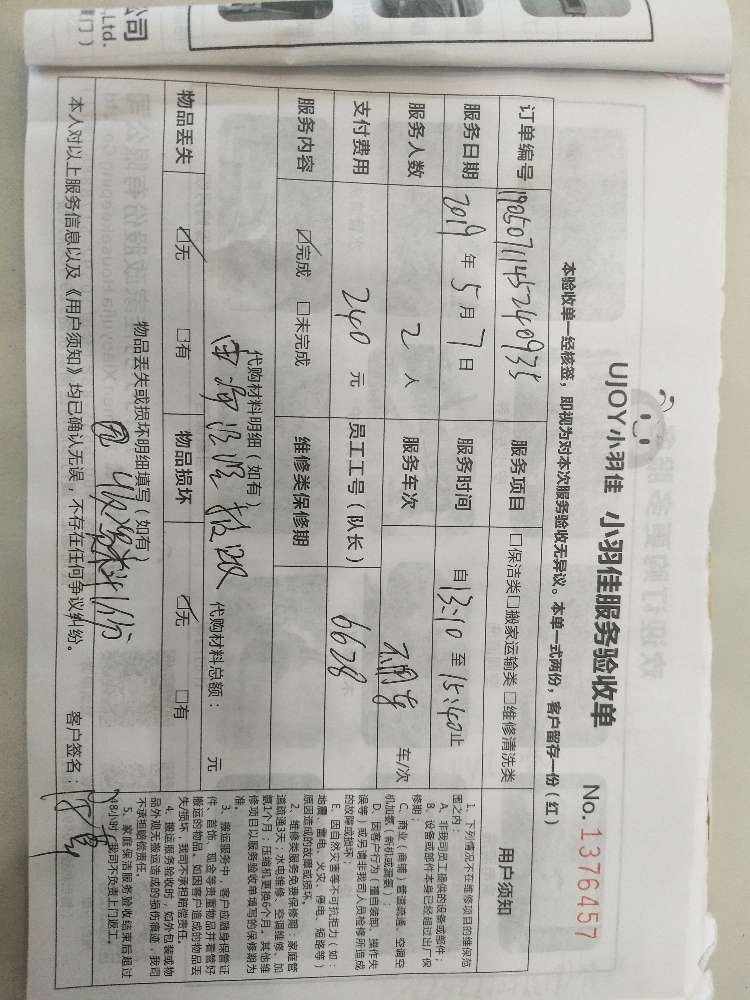 UJOY小羽佳 小羽佳服务验收单
No. 1376457
本验收单一经核签，即视为对本次服务验收无异议。本单一式两份，客户留存一份（红）
订单编号 190507114524093 服务项目 □保洁类□搬家运输类□维修清洗类
服务日期 2019 年 5 月 7 日 服务时间 自 13:10 至 15:40 止
服务人数 2 人 服务车次 不用车 车/次
支付费用 240 元 员工工号（队长） 6628
服务内容 ☑完成 □未完成 维修类保修期
代购材料明细（如有）
代购材料总额： 元
物品丢失 ☑无 □有 物品损坏 ☑无 □有
物品丢失或损坏明细填写（如有）
本人对以上服务信息以及《用户须知》均已确认无误，不存在任何争议纠纷。 客户签名：
用户须知
1、下列情况不在维修项目的维保范
围之内：
A、非我司员工提供的设备或部件；
B、设备或部件本身已经超过出厂保
修期；
C、商业（商铺）管道疏通、空调空
机加氨（新机或漏氨）；
D、因客户行为（擅自装卸、操作失
误等）或另请非我司人员检修所造成
的故障或损坏；
E、因自然灾害等不可抗拒力（如：
地震、雷电、火灾、停电、短路等）
原因造成的故障或损坏。
2、维修类服务免费保修期：家庭管
道疏通7天；水电维修、空调维修、加
氨1个月；压缩机更换6个月，其他维
修项目以服务验收单填写的保修期为
准。
3、搬运服务中，客户应随身保管证
件、首饰、现金等贵重物品并看管好
搬运的物品，如因客户造成的物品丢
失/损坏，我司不承担赔偿责任。
4、搬运服务验收时，如外包装或物
品外观无搬运造成的损伤痕迹，我司
不承担赔偿责任。
5、家庭保洁服务验收结束后超过
48小时，我司不负责上门返工。
公司
Ltd.
门）